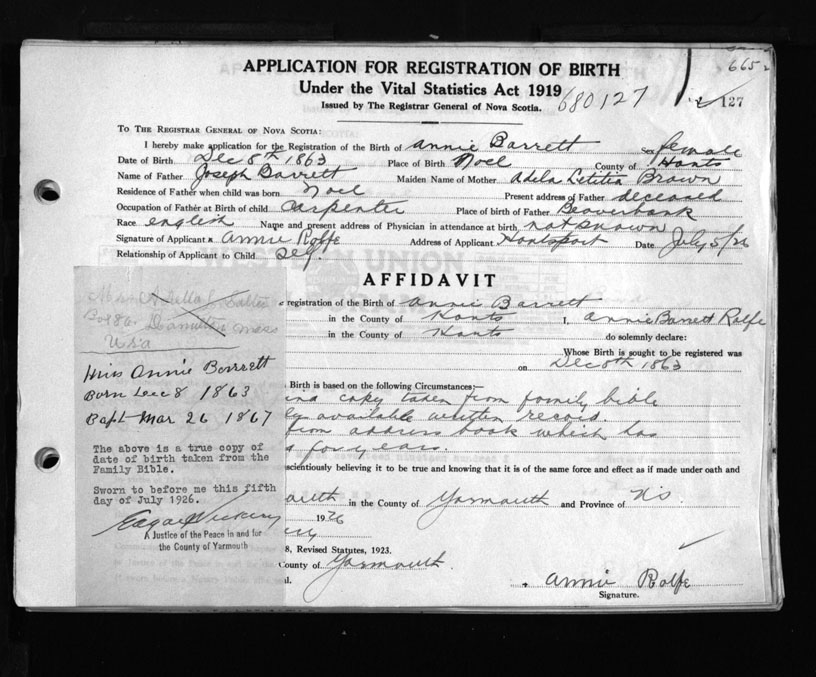 APPLICATION FOR REGISTRATION OF BIRTH
Under the Vital Statistics Act 1919
Issued by The Registrar General of Nova Scotia.
680127
6652
127
TO THE REGISTRAR GENERAL OF NOVA SCOTIA:
I hereby make application for the Registration of the Birth of Annie Barrett Sex female
Date of Birth Dec 8th 1863 Place of Birth Noel County of Hants
Name of Father Joseph Barrett Maiden Name of Mother Adela Letitia Brown
Residence of Father when child was born Noel Present address of Father deceased
Occupation of Father at Birth of child Carpenter Place of birth of Father Beaverbank
Race english Name and present address of Physician in attendance at birth not known
Signature of Applicant Annie Rolfe Address of Applicant Hantsport Date July 5/26
Relationship of Applicant to Child self.
AFFIDAVIT
registration of the Birth of Annie Barrett
in the County of Hants I, Annie Barrett Rolfe
in the County of Hants do solemnly declare:
Whose Birth is sought to be registered was
on Dec 8th 1863
Birth is based on the following Circumstances:—
copy taken from family bible
available written record.
from address book which has
for years.
scientiously believing it to be true and knowing that it is of the same force and effect as if made under oath and
in the County of Yarmouth and Province of N.S.
1926
8, Revised Statutes, 1923.
County of Yarmouth.
Annie Rolfe
Signature.
Box 86. mass
USA
Miss Annie Barrett
Born Dec 8 1863
Bapt Mar 26 1867
The above is a true copy of
date of birth taken from the
Family Bible.
Sworn to before me this fifth
day of July 1926.
A Justice of the Peace in and for
the County of Yarmouth